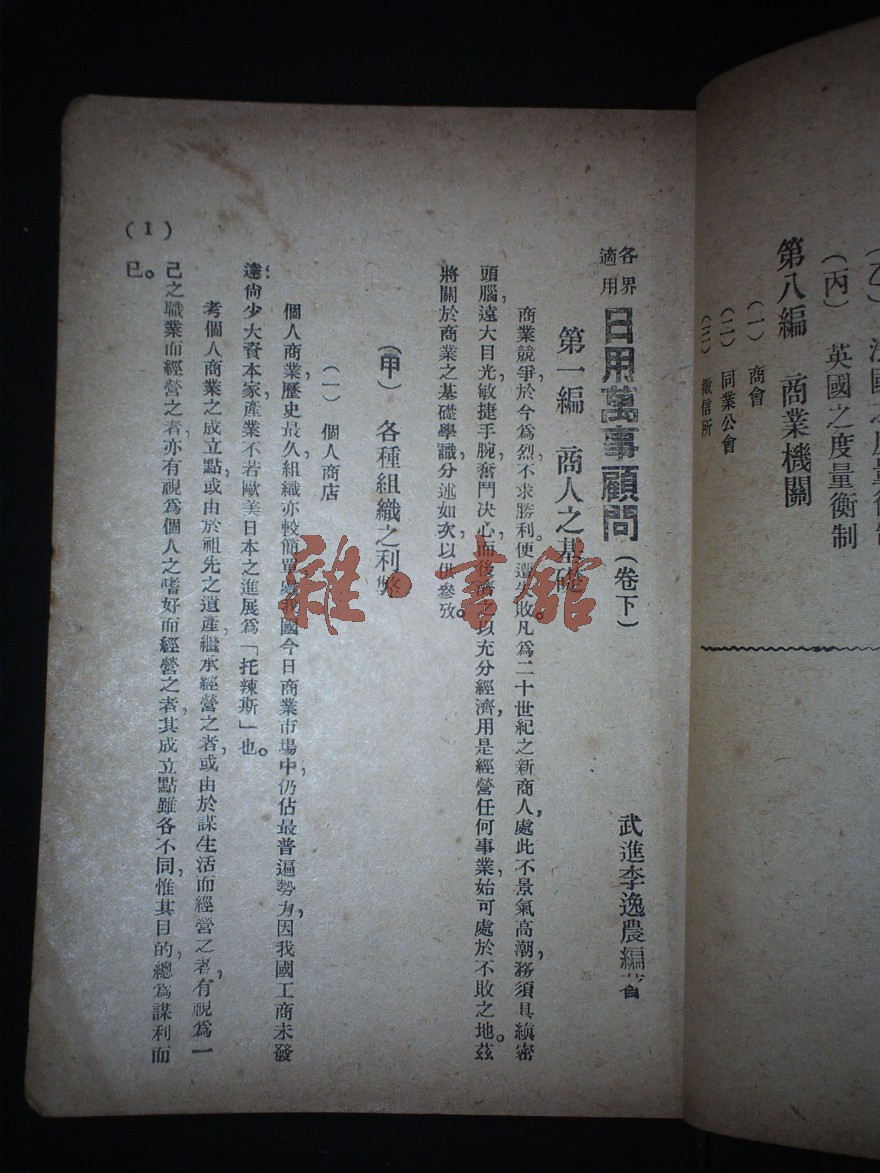 第八編　商業機關
（一）商會
（二）同業公會
（三）徵信所
（丙）英國之度量衡制
各界適用
日用萬事顧問（卷下）
武進李逸農編著
第一編　商人之基礎
商業競爭於今為烈不求勝利，便遭失敗。凡為二十世紀之新商人，處此不景氣高潮，務須具縝密
頭腦，遠大目光，敏捷手腕，奮鬥決心，而後濟之以充分經濟，用是經營任何事業，始可處於不敗之地。茲
將關於商業之基礎學識，分述如次，以供參攷。
（甲）各種組織之利弊
（一）個人商店
個人商業，歷史最久，組織亦較簡單，我國今日商業市場中，仍佔最普遍勢力，因我國工商未發
達，尙少大資本家，產業不若歐美日本之進展為「托辣斯」也。
考個人商業之成立點，或由於祖先之遺產，繼承經營之者，或由於謀生活而經營之者，有視為一
己之職業而經營之者，亦有視為個人之嗜好而經營之者，其成立點雖各不同，惟其目的，總為謀利而
已。
（1）
雜·書館